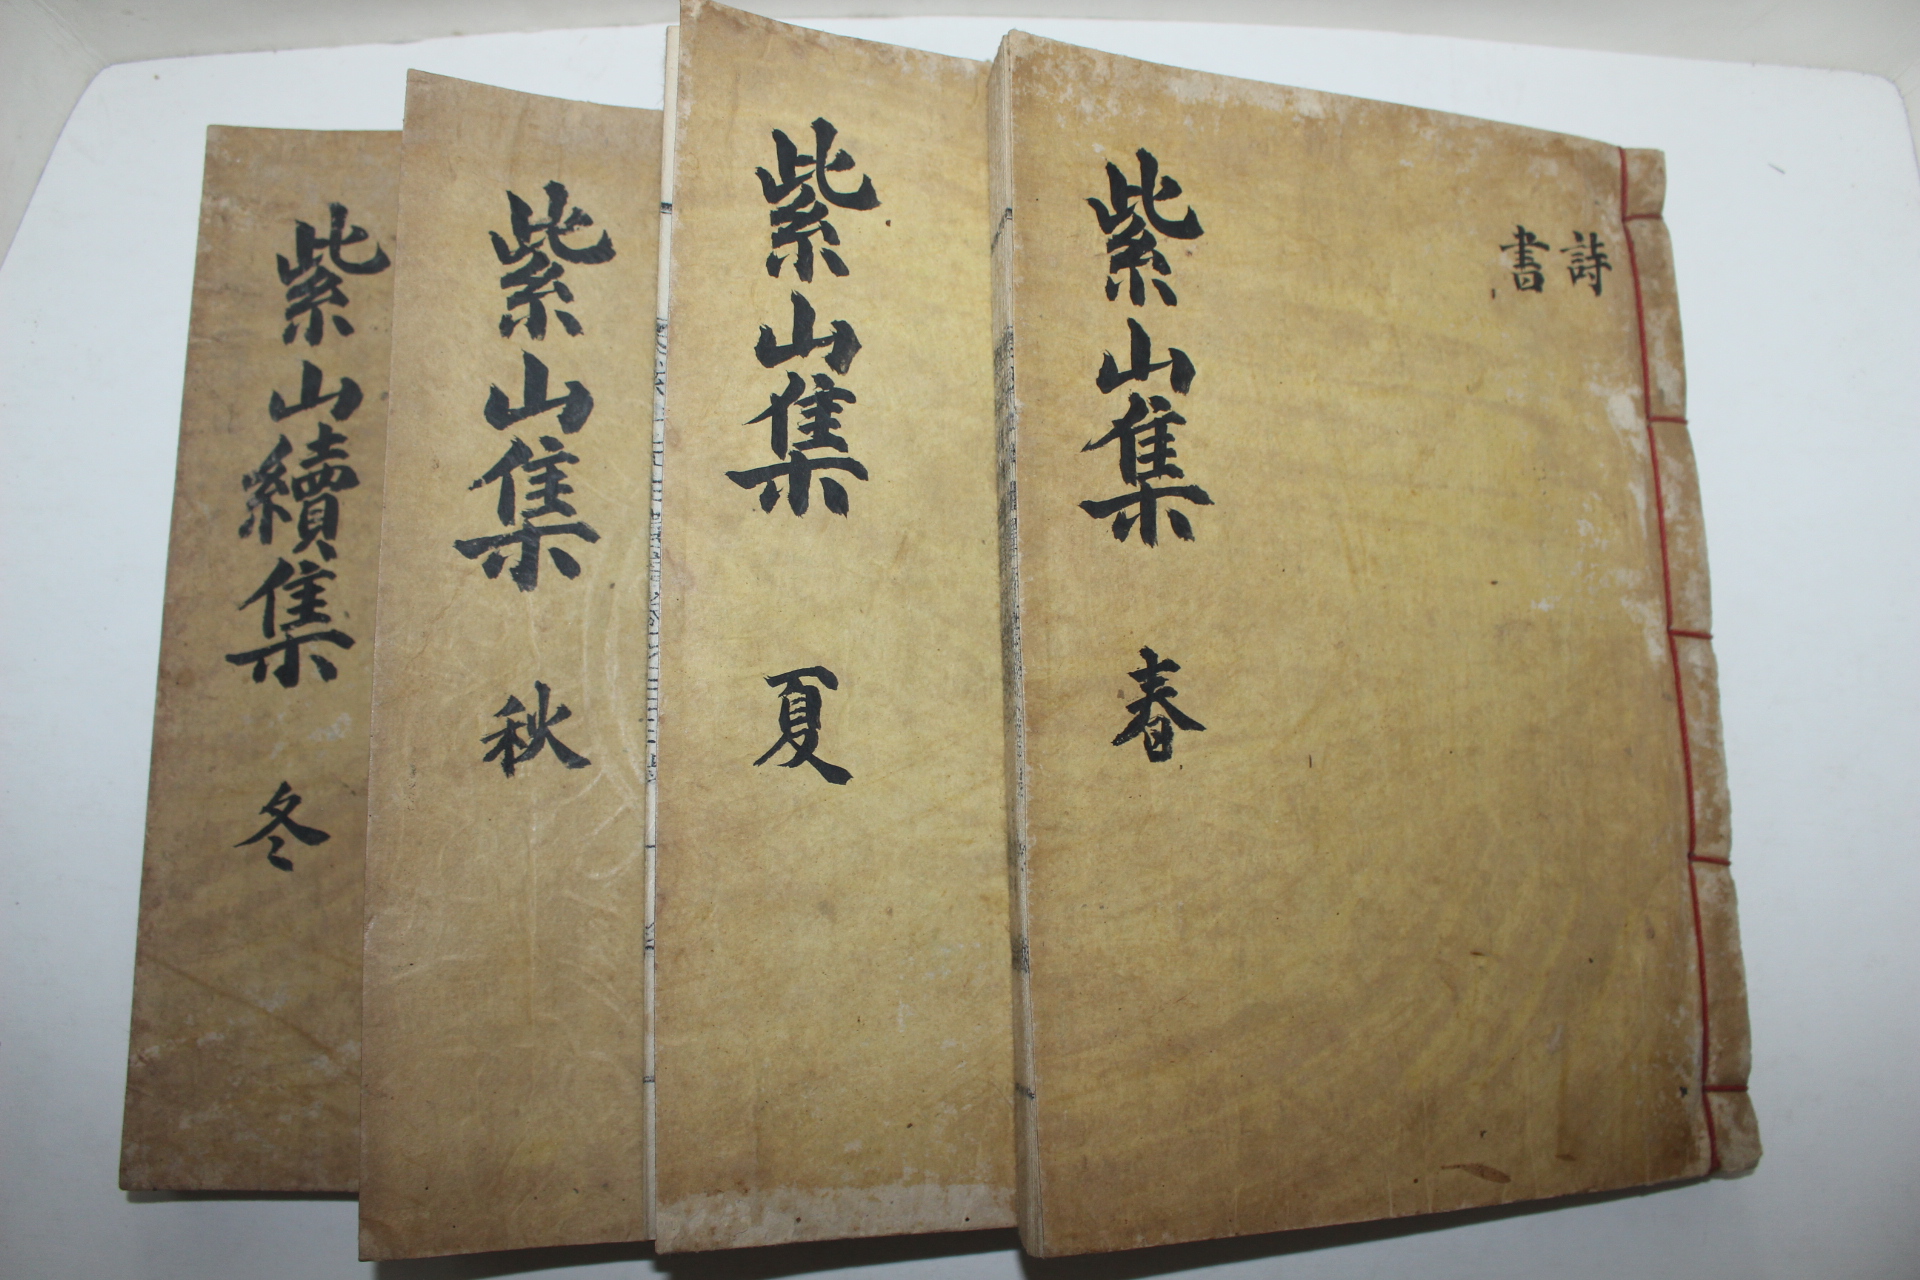 詩
書
紫山集 春
紫山集 夏
紫山集 秋
紫山續集 冬